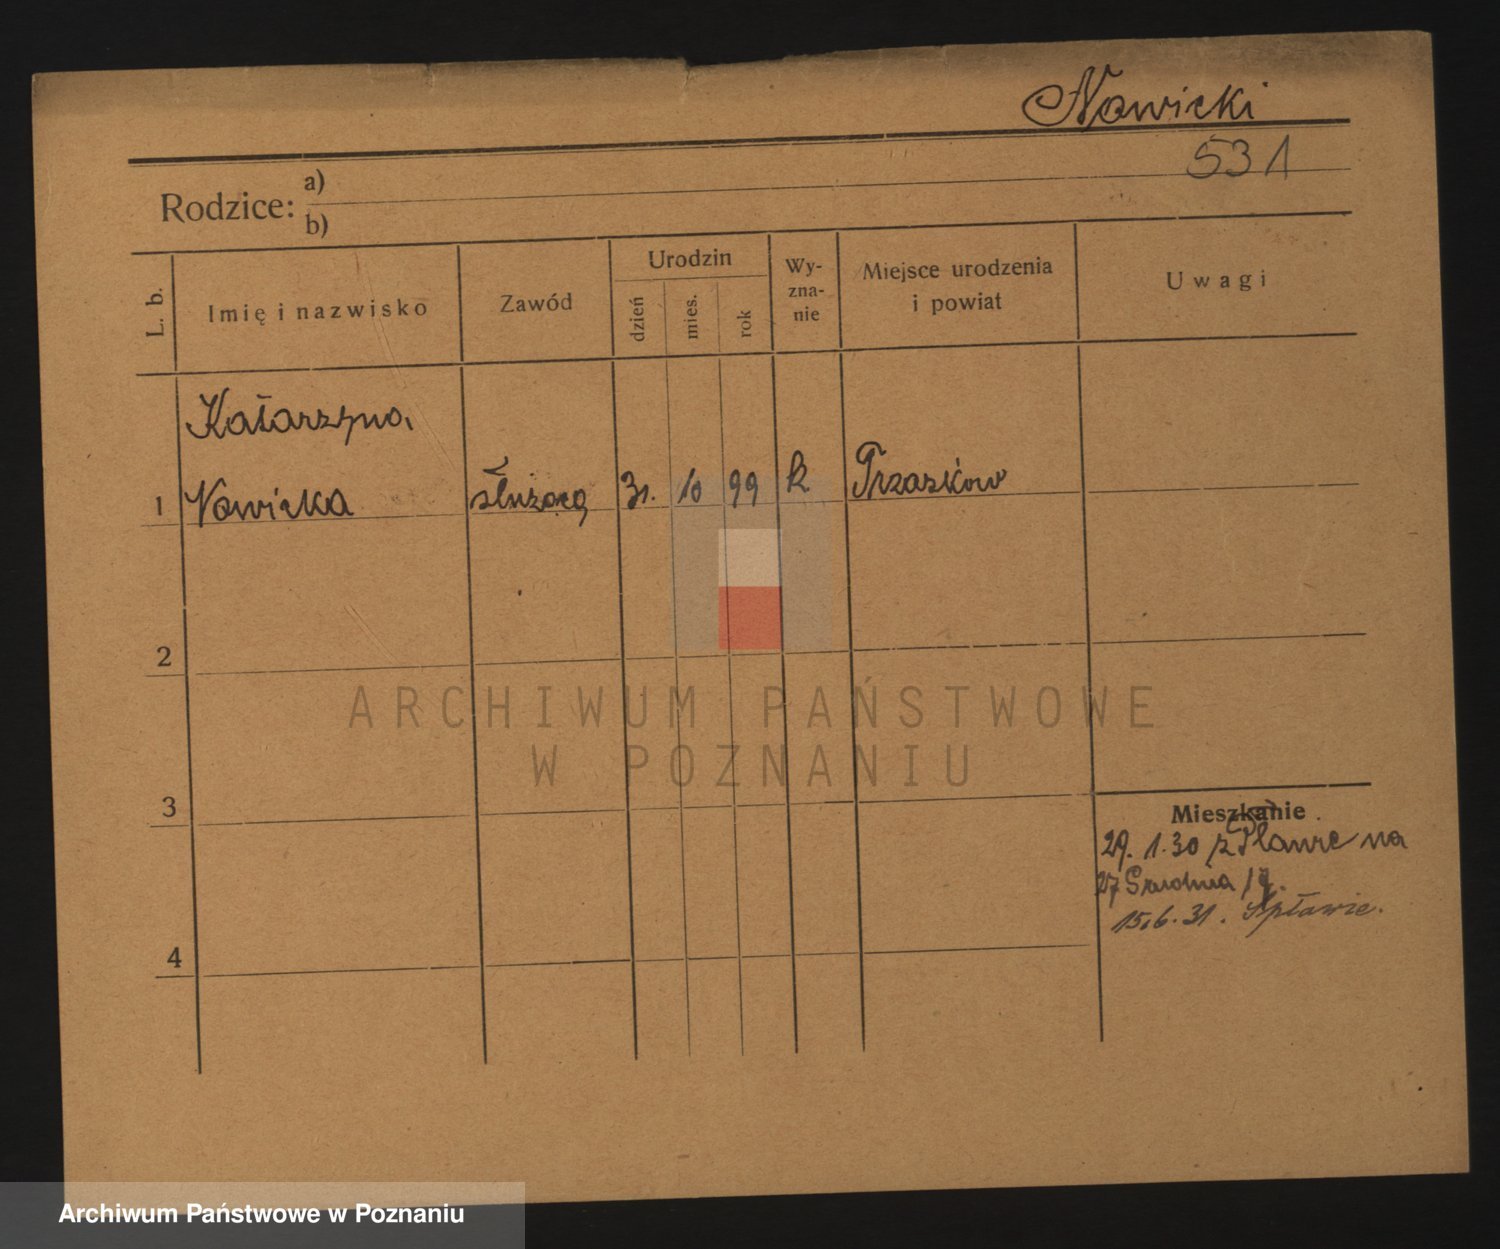 Nowicki
531
Rodzice: a)
b)
L. b.
Imię i nazwisko
Zawód
Urodzin
dzień
mies.
rok
Wy-
zna-
nie
Miejsce urodzenia
i powiat
Uwagi
Katarzyna
1 Nowicka służącą 31. 10 99 k
2
3
4
Mieszkanie
29. 1.30 z na
27 Grudnia
15.6.31. Spławie.
ARCHIWUM PAŃSTWOWE
W POZNANIU
Archiwum Państwowe w Poznaniu